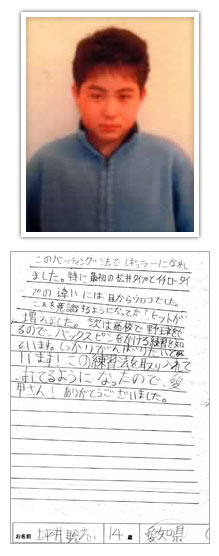 このバッティング法でレギュラーになれ
ました。特に最初の松井タイプとイチロータイ
プの違いには、目からウロコでした。
これを意識するようになってからヒットが
増えました。次は高校で野球をや
るので、バックスピンをかける練習を
しっかりがんばりたいと思
います！この練習法を取り入れて
打てるようになったので、
さん！ありがとうございました。
お名前 坪井聡志 14歳 愛知県